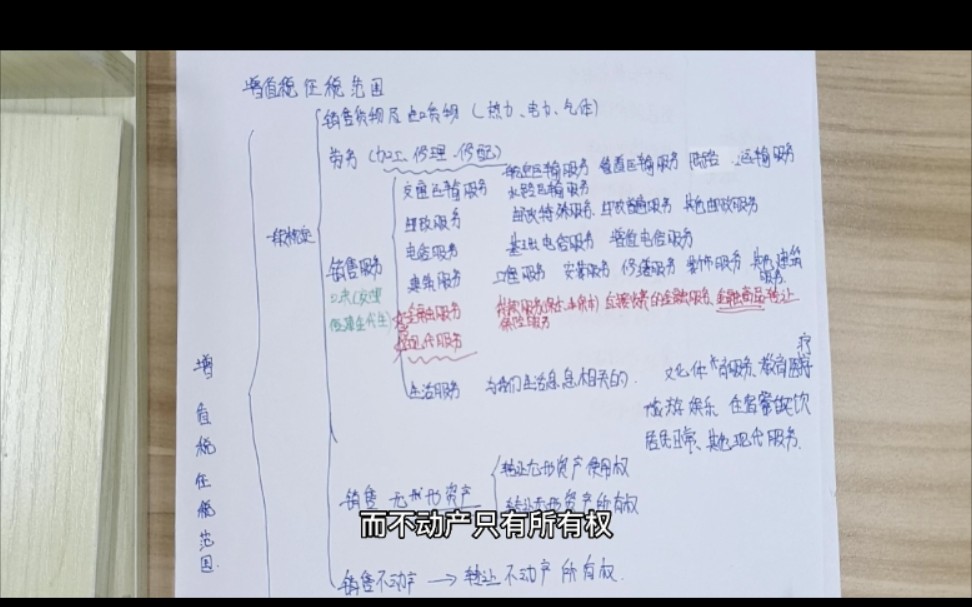 增值税征税范围
销售货物及进口货物（热力、电力、气体）
劳务（加工、修理、修配）
交通运输服务 航空运输服务 管道运输服务 陆路运输服务
水路运输服务
邮政服务 邮政特殊服务、邮政普通服务 其他邮政服务
电信服务 基础电信服务 增值电信服务
一般规定
销售服务
建筑服务 工程服务 安装服务 修缮服务 装饰服务 其他建筑
服务.
金融服务 直接收费的金融服务、金融商品转让
保险服务
现代服务
生活服务 与我们生活息息相关的. 文化体育服务、教育医疗
旅游娱乐 住宿餐饮
居民日常、其他现代服务.
增值税征税范围.
销售无形资产
转让无形资产使用权
转让无形资产所有权
而不动产只有所有权
销售不动产 → 转让不动产所有权.